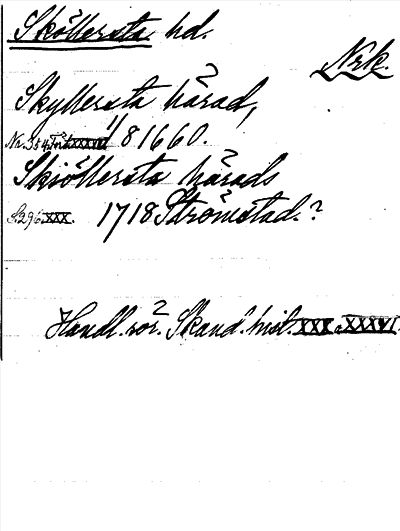 Sköllersta hd.
Nrk.
Skyllersta härad,
11/8 1660.
Skiöllersta härads
S. 296. XXX. 1718 Strömstad.?
Handl. rör. Skand. hist. XXX o. XXXVI.